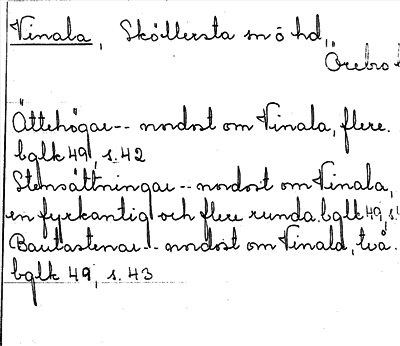 Vinala, Sköllersta sn ö hd,
Örebro l
Ättehögar-- nordost om Vinala, flere.
bglk 49, s. 42
Stensättningar -- nordost om Vinala,
en fyrkantig och flere runda. bglk 49, s.4
Bautastenar-- nordost om Vinala, två.
bglk 49, s. 43